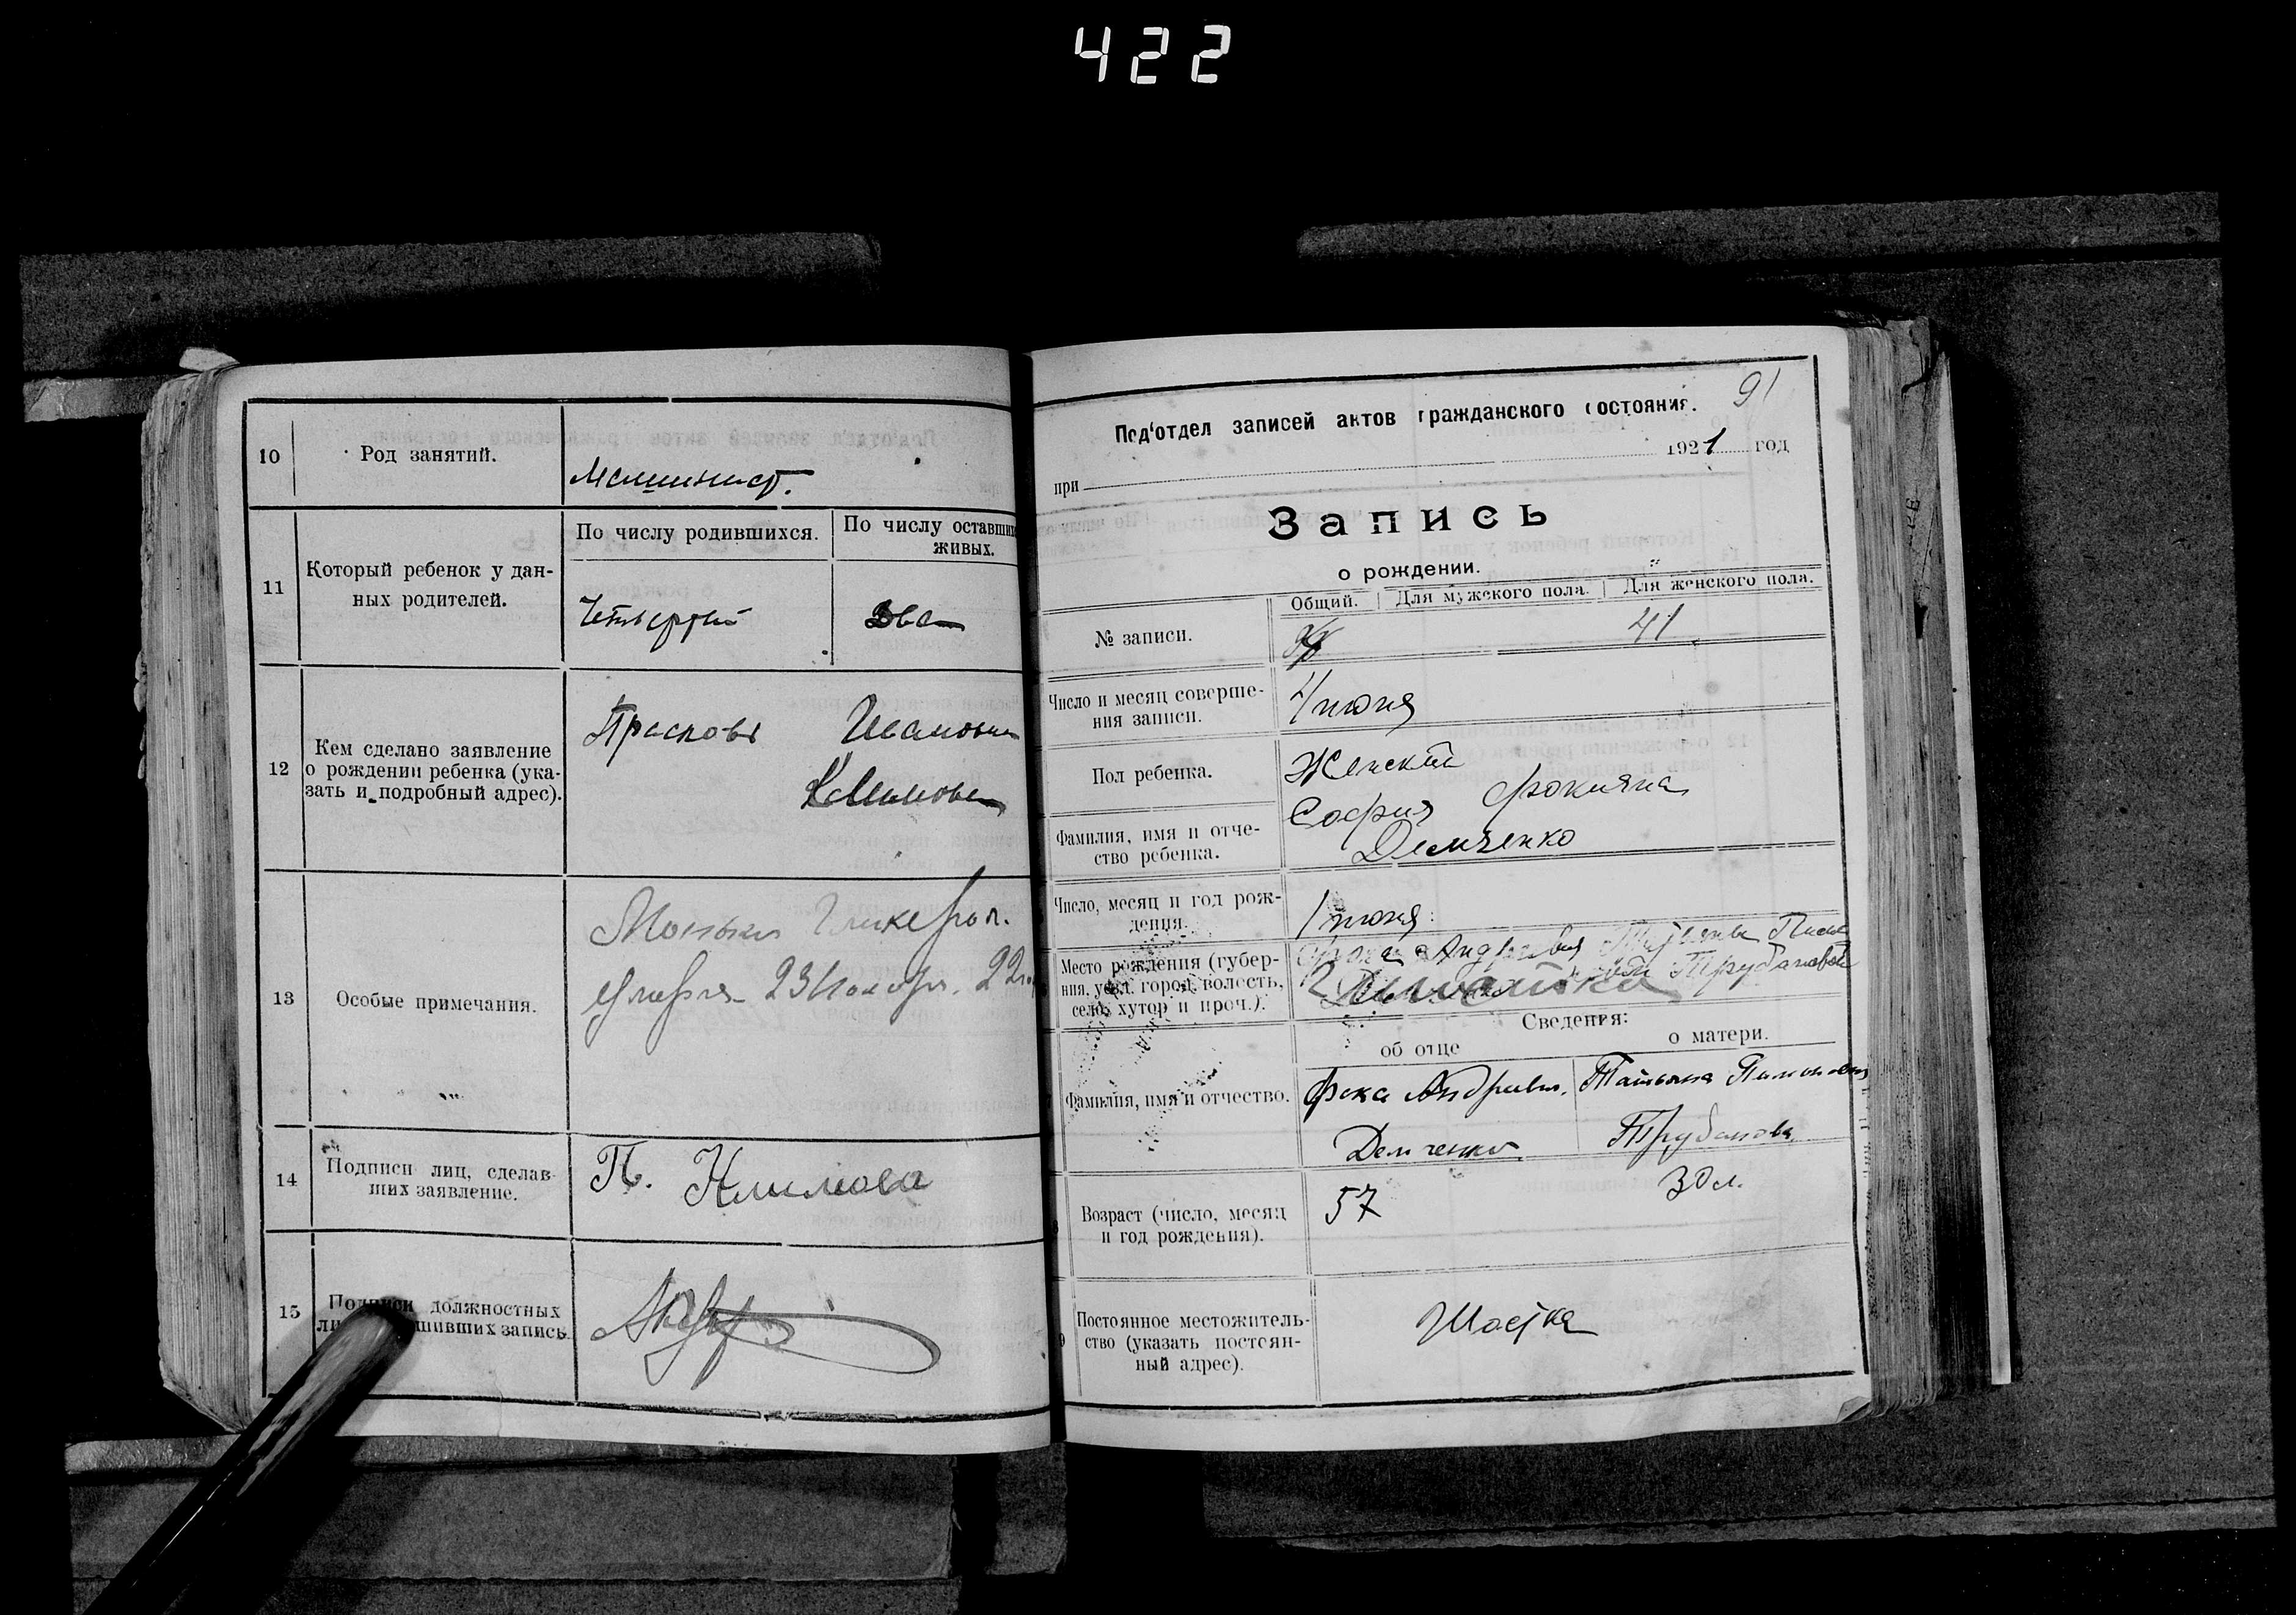 422
10 Род занятий.
Машинист.
11 Который ребенок у дан-
ных родителей.
По числу родившихся.
Четвертый
По числу оставши
живых.
Два
12 Кем сделано заявление
о рождении ребенка (ука-
зать и подробный адрес).
Прасковья Ивановна
Климова
13 Особые примечания.
23 22
14 Подписи лиц, сделав-
ших заявление.
П. Климова
15 Подписи должностных
шивших запись.
91
Под'отдел записей актов гражданского состояния.
при 1921 год
Запись
о рождении.
Общий. Для мужского пола. Для женского пола.
№ записи. 41
Число и месяц соверше-
ния записи.
4 июня
Пол ребенка.
Женский
Фамилия, имя и отче-
ство ребенка.
София Фокияна
Демченко
Число, месяц и год рож-
дения.
1 июня
Место рождения (губер-
ния, уезд, город, волость,
село, хутор и проч.).
Трубановой
Сведения:
об отце о матери.
Фамилия, имя и отчество.
Фока Андриевич. Татьяна
Демченко Трубанова
Возраст (число, месяц
и год рождения).
57 30 л.
Постоянное местожитель-
ство (указать постоян-
ный адрес).
Шостка